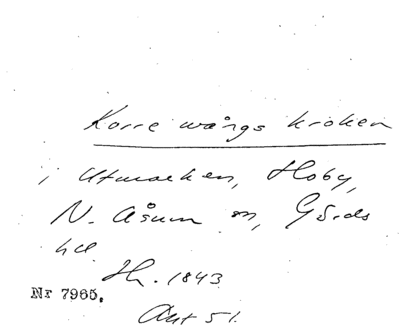 Korre wångs kroken
i Utmarken, Hoby,
N. Åsum sn, Gärds
hd.
Sk. 1843
Nr 7965.
Akt 51.